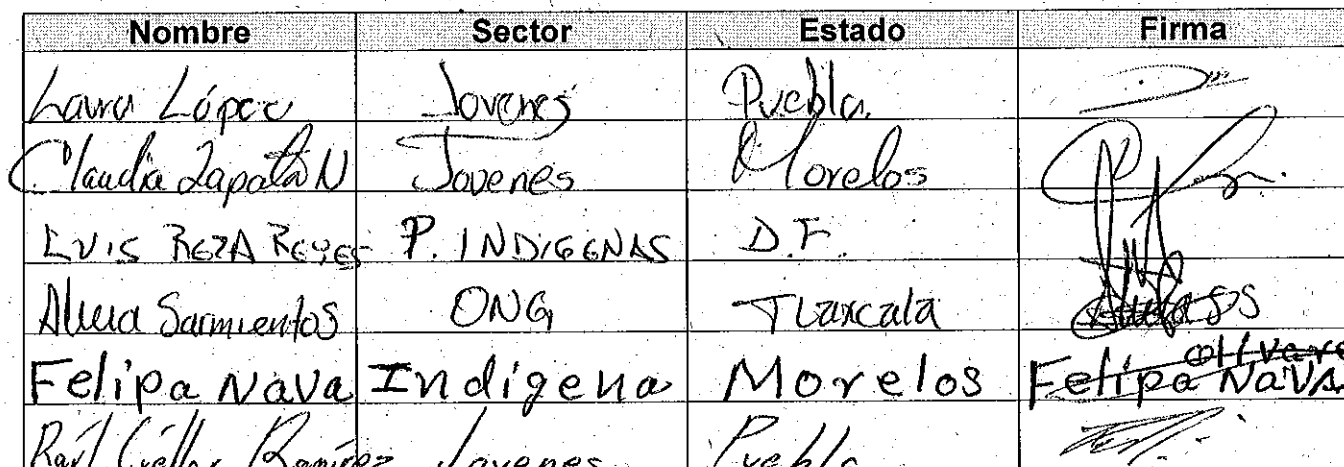 Nombre Sector Estado Firma
Laura López Jovenes Puebla.
Claudia Zapata N Jovenes Morelos
LUIS REZA REYES P. INDIGENAS D.F.
Sarmiento S ONG Tlaxcala
Felipa Nava Indígena Morelos Felipa Nava
Raúl Cuéllar Ramírez Jovenes Puebla